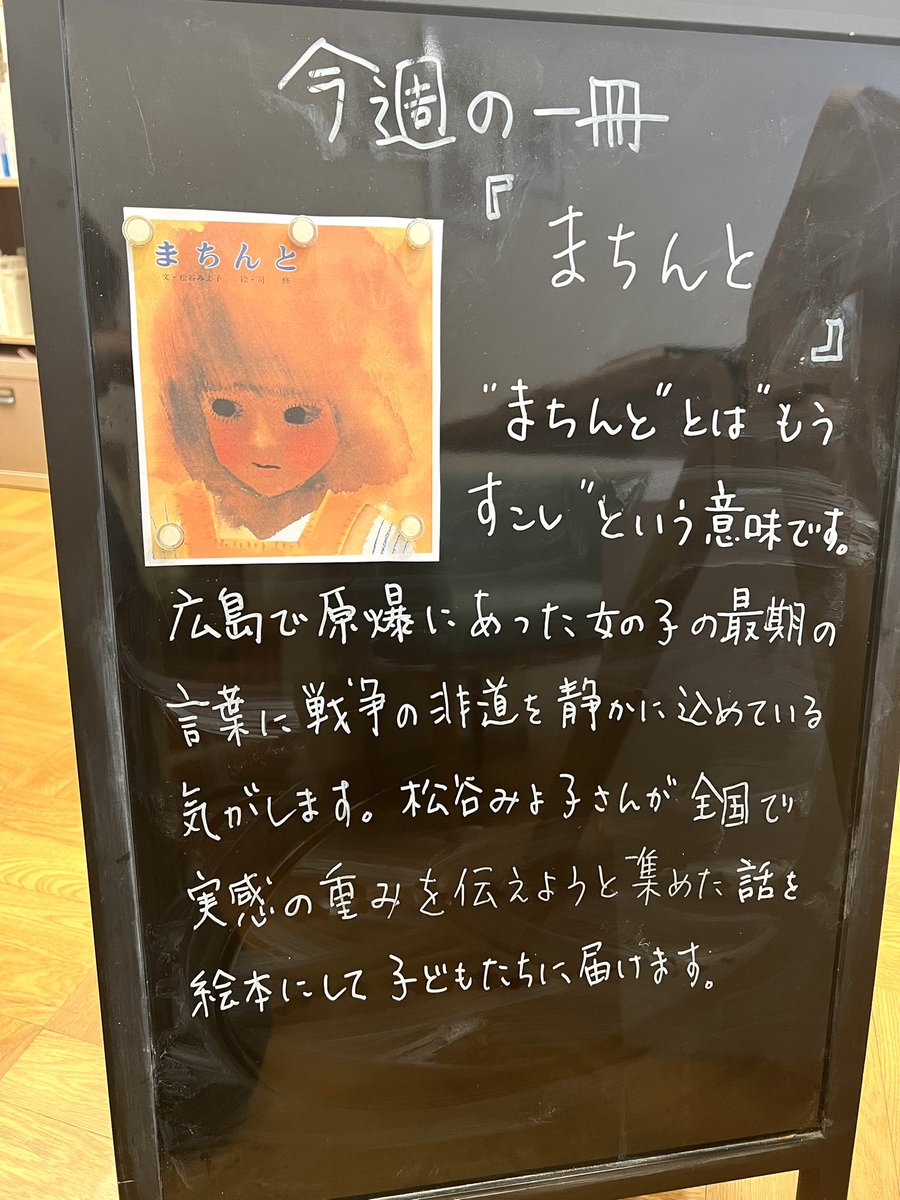 今週の一冊
『まちんと』
まちんと
文・松谷みよ子 絵・司 修
"まちんと"とは"もう
すこし"という意味です。
広島で原爆にあった女の子の最期の
言葉に戦争の非道を静かに込めている
気がします。松谷みよ子さんが全国で
実感の重みを伝えようと集めた話を
絵本にして子どもたちに届けます。